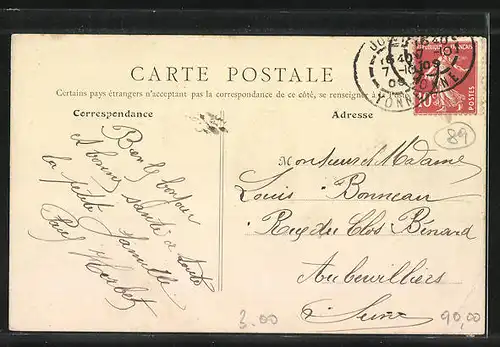 CARTE POSTALE
Certains pays étrangers n'acceptant pas la correspondance de ce côté, se renseigner à
Correspondance
Adresse
Bien le bonjour
et bonne santé à toute
la petite famille
Paul Herbet
Monsieur et Madame
Louis Bonneau
Rue du Clos Bénard
Aubervilliers
Seine
YONNE
10
POSTES
89
3.00
90,00